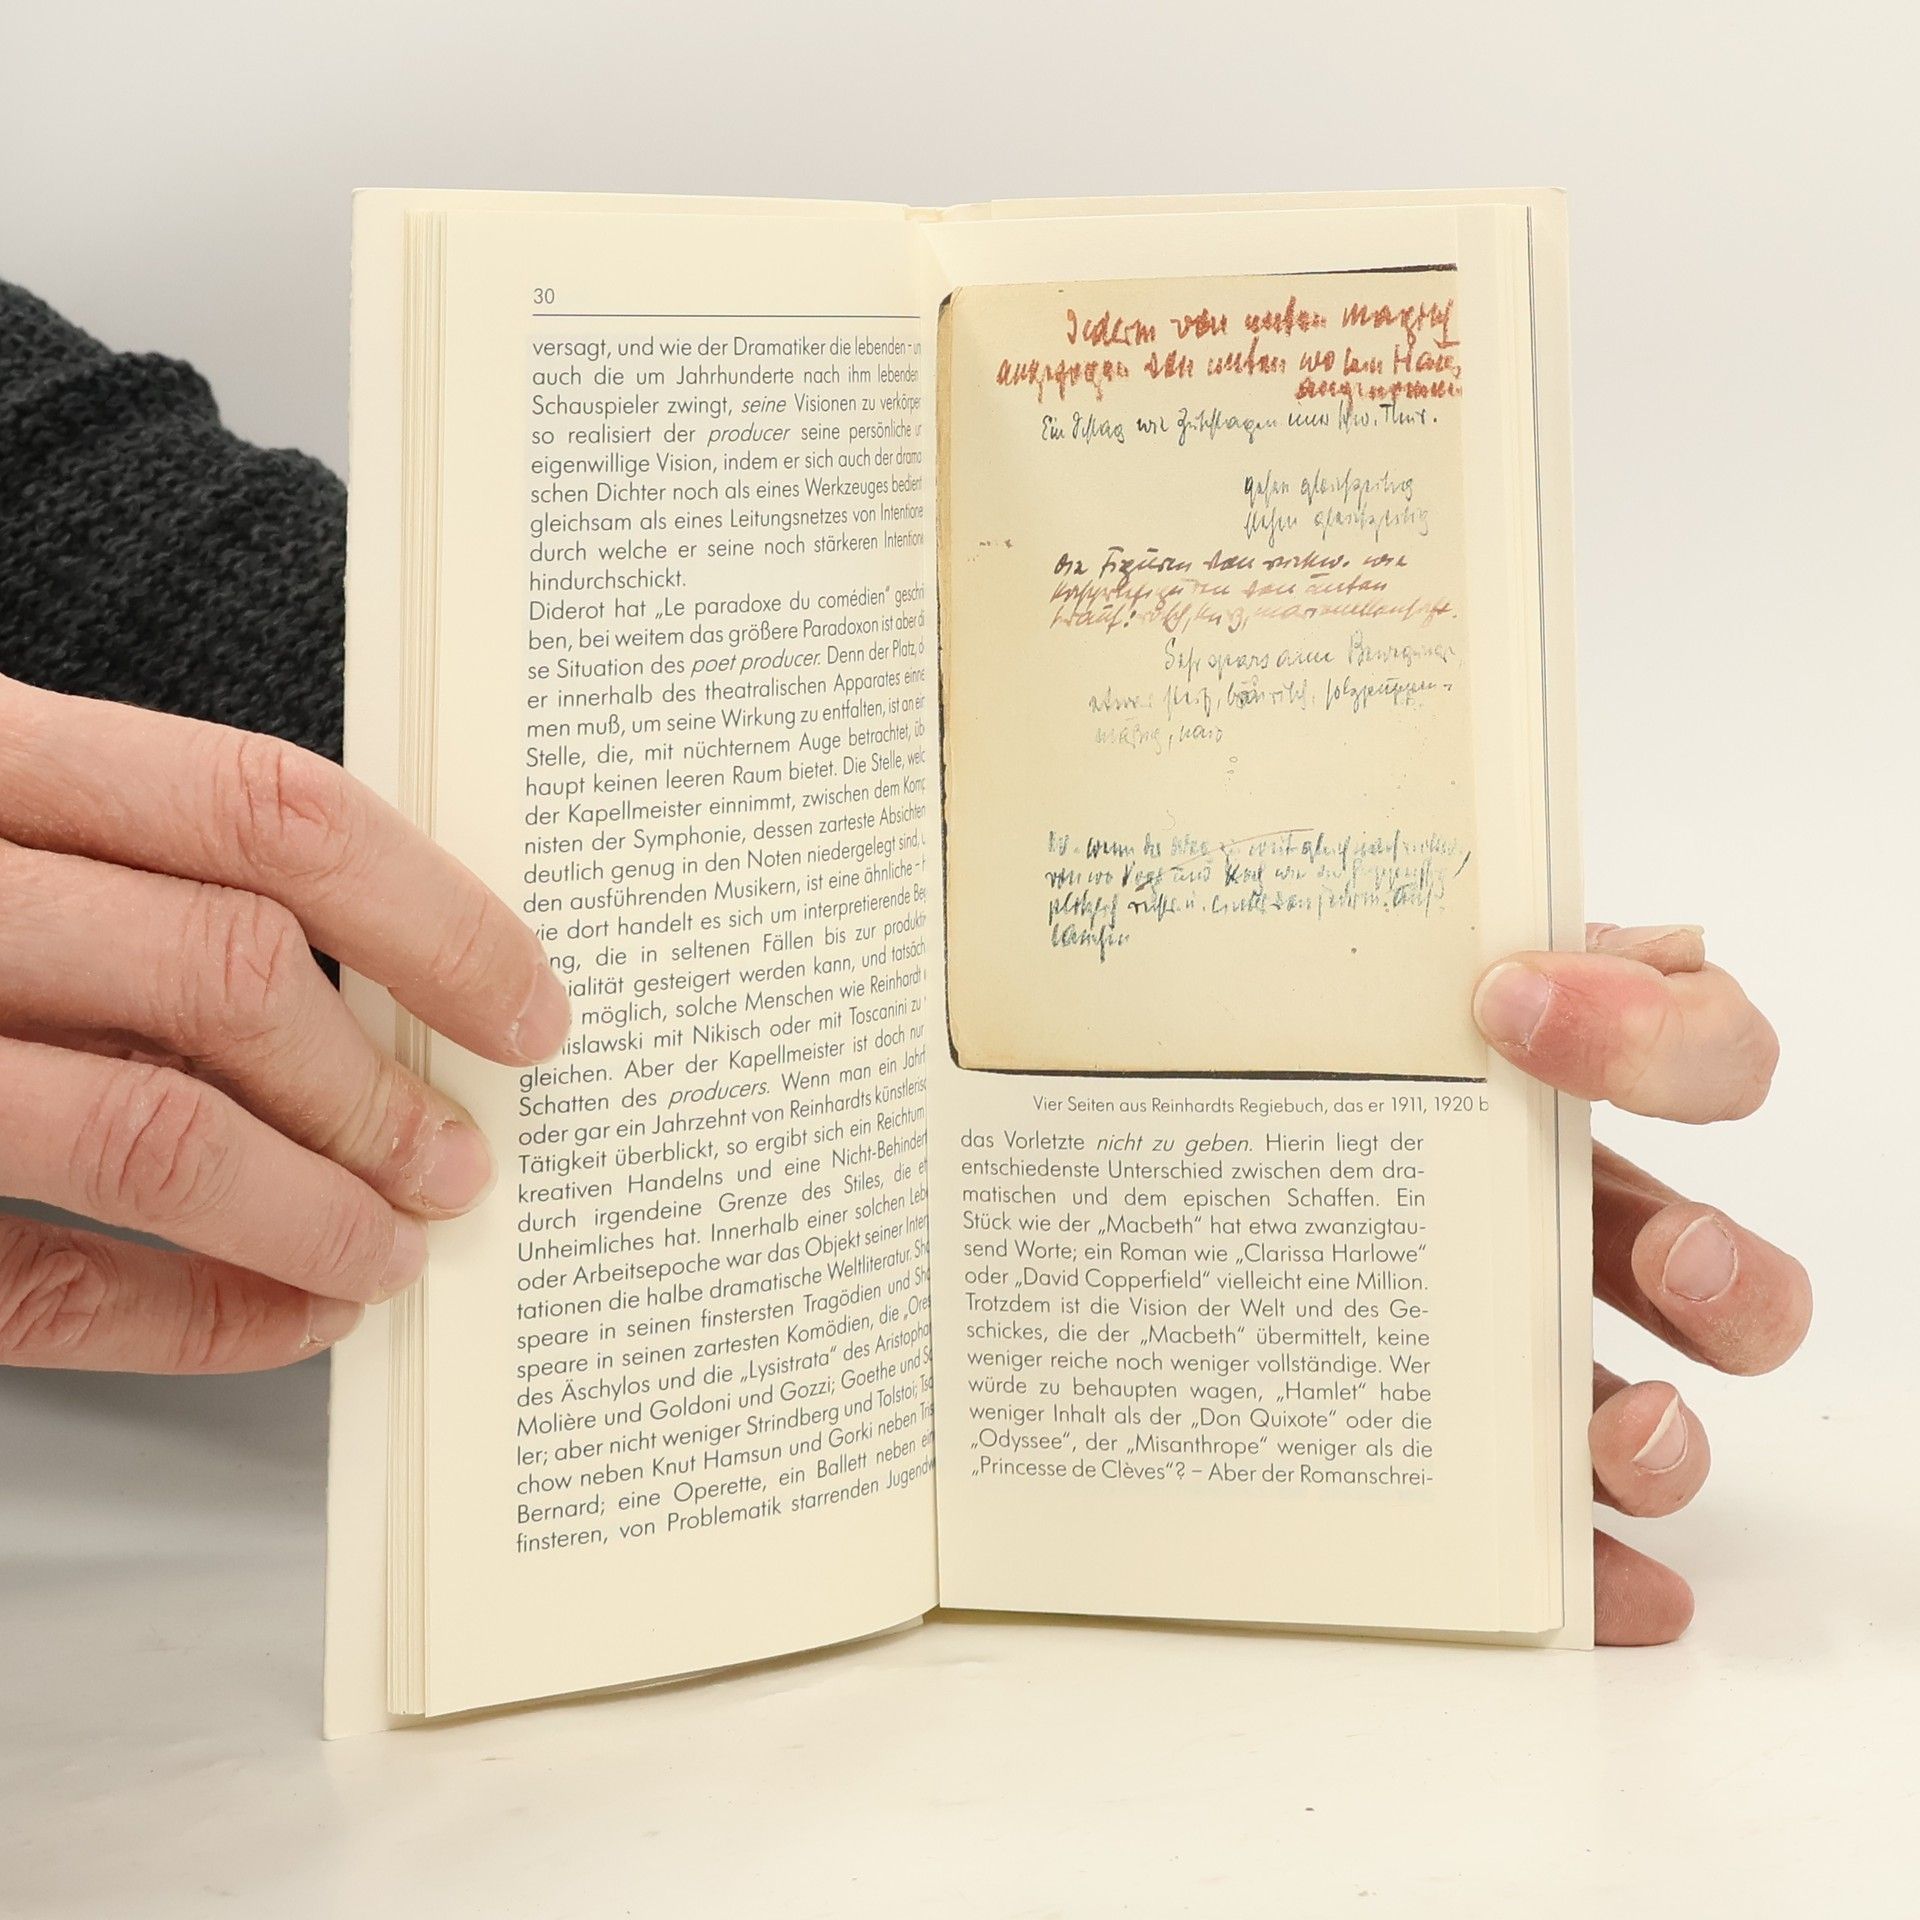 30
versagt, und wie der Dramatiker die lebenden –
auch die um Jahrhunderte nach ihm lebenden
Schauspieler zwingt, seine Visionen zu verkörpe
so realisiert der producer seine persönliche
eigenwillige Vision, indem er sich auch der drama
schen Dichter noch als eines Werkzeuges bedient
gleichsam als eines Leitungsnetzes von Intentione
durch welche er seine noch stärkeren Intention
hindurchschickt.
Diderot hat „Le paradoxe du comédien“ geschri
ben, bei weitem das größere Paradoxon ist aber di
se Situation des poet producer. Denn der Platz, d
er innerhalb des theatralischen Apparates einne
men muß, um seine Wirkung zu entfalten, ist an ein
Stelle, die, mit nüchternem Auge betrachtet, üb
haupt keinen leeren Raum bietet. Die Stelle, welc
der Kapellmeister einnimmt, zwischen dem Komp
nisten der Symphonie, dessen zarteste Absichten
deutlich genug in den Noten niedergelegt sind,
den ausführenden Musikern, ist eine ähnliche –
wie dort handelt es sich um interpretierende Be
ng, die in seltenen Fällen bis zur produkti
ialität gesteigert werden kann, und tatsäch
möglich, solche Menschen wie Reinhardt
nislawski mit Nikisch oder mit Toscanini zu
gleichen. Aber der Kapellmeister ist doch nur
Schatten des producers. Wenn man ein Jahr
oder gar ein Jahrzehnt von Reinhardts künstleris
Tätigkeit überblickt, so ergibt sich ein Reichtum
kreativen Handelns und eine Nicht-Behinder
durch irgendeine Grenze des Stiles, die et
Unheimliches hat. Innerhalb einer solchen Leb
oder Arbeitsepoche war das Objekt seiner Inter
tationen die halbe dramatische Weltliteratur. Sha
speare in seinen finstersten Tragödien und Sha
speare in seinen zartesten Komödien, die „Ores
des Äschylos und die „Lysistrata“ des Aristopha
Molière und Goldoni und Gozzi; Goethe und Sc
ler; aber nicht weniger Strindberg und Tolstoi; Tsc
chow neben Knut Hamsun und Gorki neben Tris
Bernard; eine Operette, ein Ballett neben ein
finsteren, von Problematik starrenden Jugendw
Jederm von unten magisch
angezogen von unten wo
Ein Schlag wie Zuschlagen einer Thür.
gehen gleichzeitig
stehen gleichzeitig
die Figuren von wie
von unten
herauf:
Sehr sparsame Bewegungen
etwas steif, bäurisch, holzpuppen-
mäßig, naiv
wenn die
von wo Vogt und Koch wie
plötzlich rechts u. links von Jederm. auf-
tauchen
Vier Seiten aus Reinhardts Regiebuch, das er 1911, 1920 b
das Vorletzte nicht zu geben. Hierin liegt der
entschiedenste Unterschied zwischen dem dra-
matischen und dem epischen Schaffen. Ein
Stück wie der „Macbeth“ hat etwa zwanzigtau-
send Worte; ein Roman wie „Clarissa Harlowe“
oder „David Copperfield“ vielleicht eine Million.
Trotzdem ist die Vision der Welt und des Ge-
schickes, die der „Macbeth“ übermittelt, keine
weniger reiche noch weniger vollständige. Wer
würde zu behaupten wagen, „Hamlet“ habe
weniger Inhalt als der „Don Quixote“ oder die
„Odyssee“, der „Misanthrope“ weniger als die
„Princesse de Clèves“? – Aber der Romanschrei-